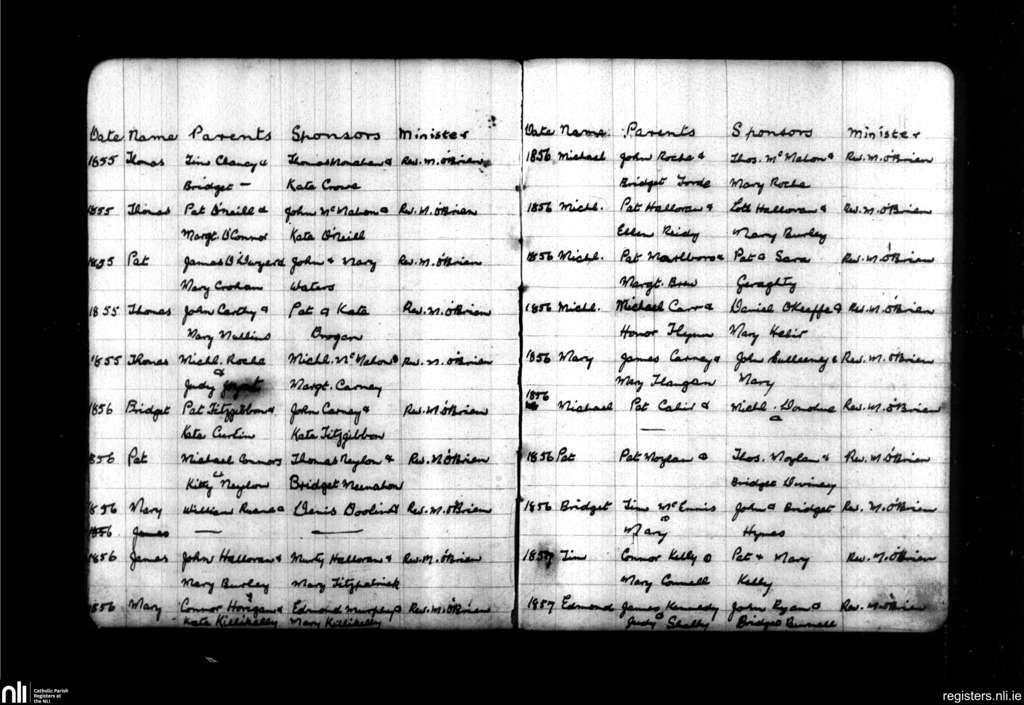 Date Name Parents Sponsors Minister
1855 Thomas Tim Clancy & Thomas Monahan & Rev. M. O'Brien
Bridget — Kate Crowe
1855 Thomas Pat O'Neill & John McMahon & Rev. M. O'Brien
Margt. O'Connor Kate O'Neill
1855 Pat James O'Dwyer & John & Mary Rev. M. O'Brien
Mary Crohan Waters
1855 Thomas John Carthy & Pat & Kate Rev. M. O'Brien
Mary Mullins Brogan
1855 Thomas Michl. Roche Michl. McMahon & Rev. M. O'Brien
&
Judy Margt. Carney
1856 Bridget Pat Fitzgibbon & John Carney & Rev. M. O'Brien
Kate Curtin Kate Fitzgibbon
1856 Pat Michael Connors Thomas Neylon & Rev. M. O'Brien
&
Kitty Neylon Bridget
1856 Mary William Ruane & Denis Rev. M. O'Brien
1856 James — —
1856 James John Halloran & Murty Halloran & Rev. M. O'Brien
Mary Burley Mary Fitzpatrick
1856 Mary Connor Horigan & Edmond Murphy & Rev. M. O'Brien
Kate Killikelly Mary Killikelly
Date Name Parents Sponsors Minister
1856 Michael John Roche & Thos. McMahon & Rev. M. O'Brien
Bridget Forde Mary Roche
1856 Michl. Pat Halloran & Lott Halloran & Rev. M. O'Brien
Ellen Reidy Mary Burley
1856 Michl. Pat Marlboro & Pat & Sara Rev. M. O'Brien
Margt. Brew Geraghty
1856 Michl. Michael Carr & Daniel O'Keeffe & Rev. M. O'Brien
Honor Flynn Mary
1856 Mary James Carney & John & Rev. M. O'Brien
Mary Flangan Mary
1856 Michael Pat Cahir & Michl. Donohue Rev. M. O'Brien
— &
1856 Pat Pat Moylan & Thos. Moylan & Rev. M. O'Brien
Bridget
1856 Bridget Tim McEnnis John & Bridget Rev. M. O'Brien
&
Mary Hynes
1857 Tim Connor Kelly & Pat & Mary Rev. M. O'Brien
Mary Connell Kelly
1857 Edmond James Kennedy John Ryan & Rev. M. O'Brien
&
Judy Skelly Bridget Burnell
nli Catholic Parish
Registers at
the NLI
registers.nli.ie